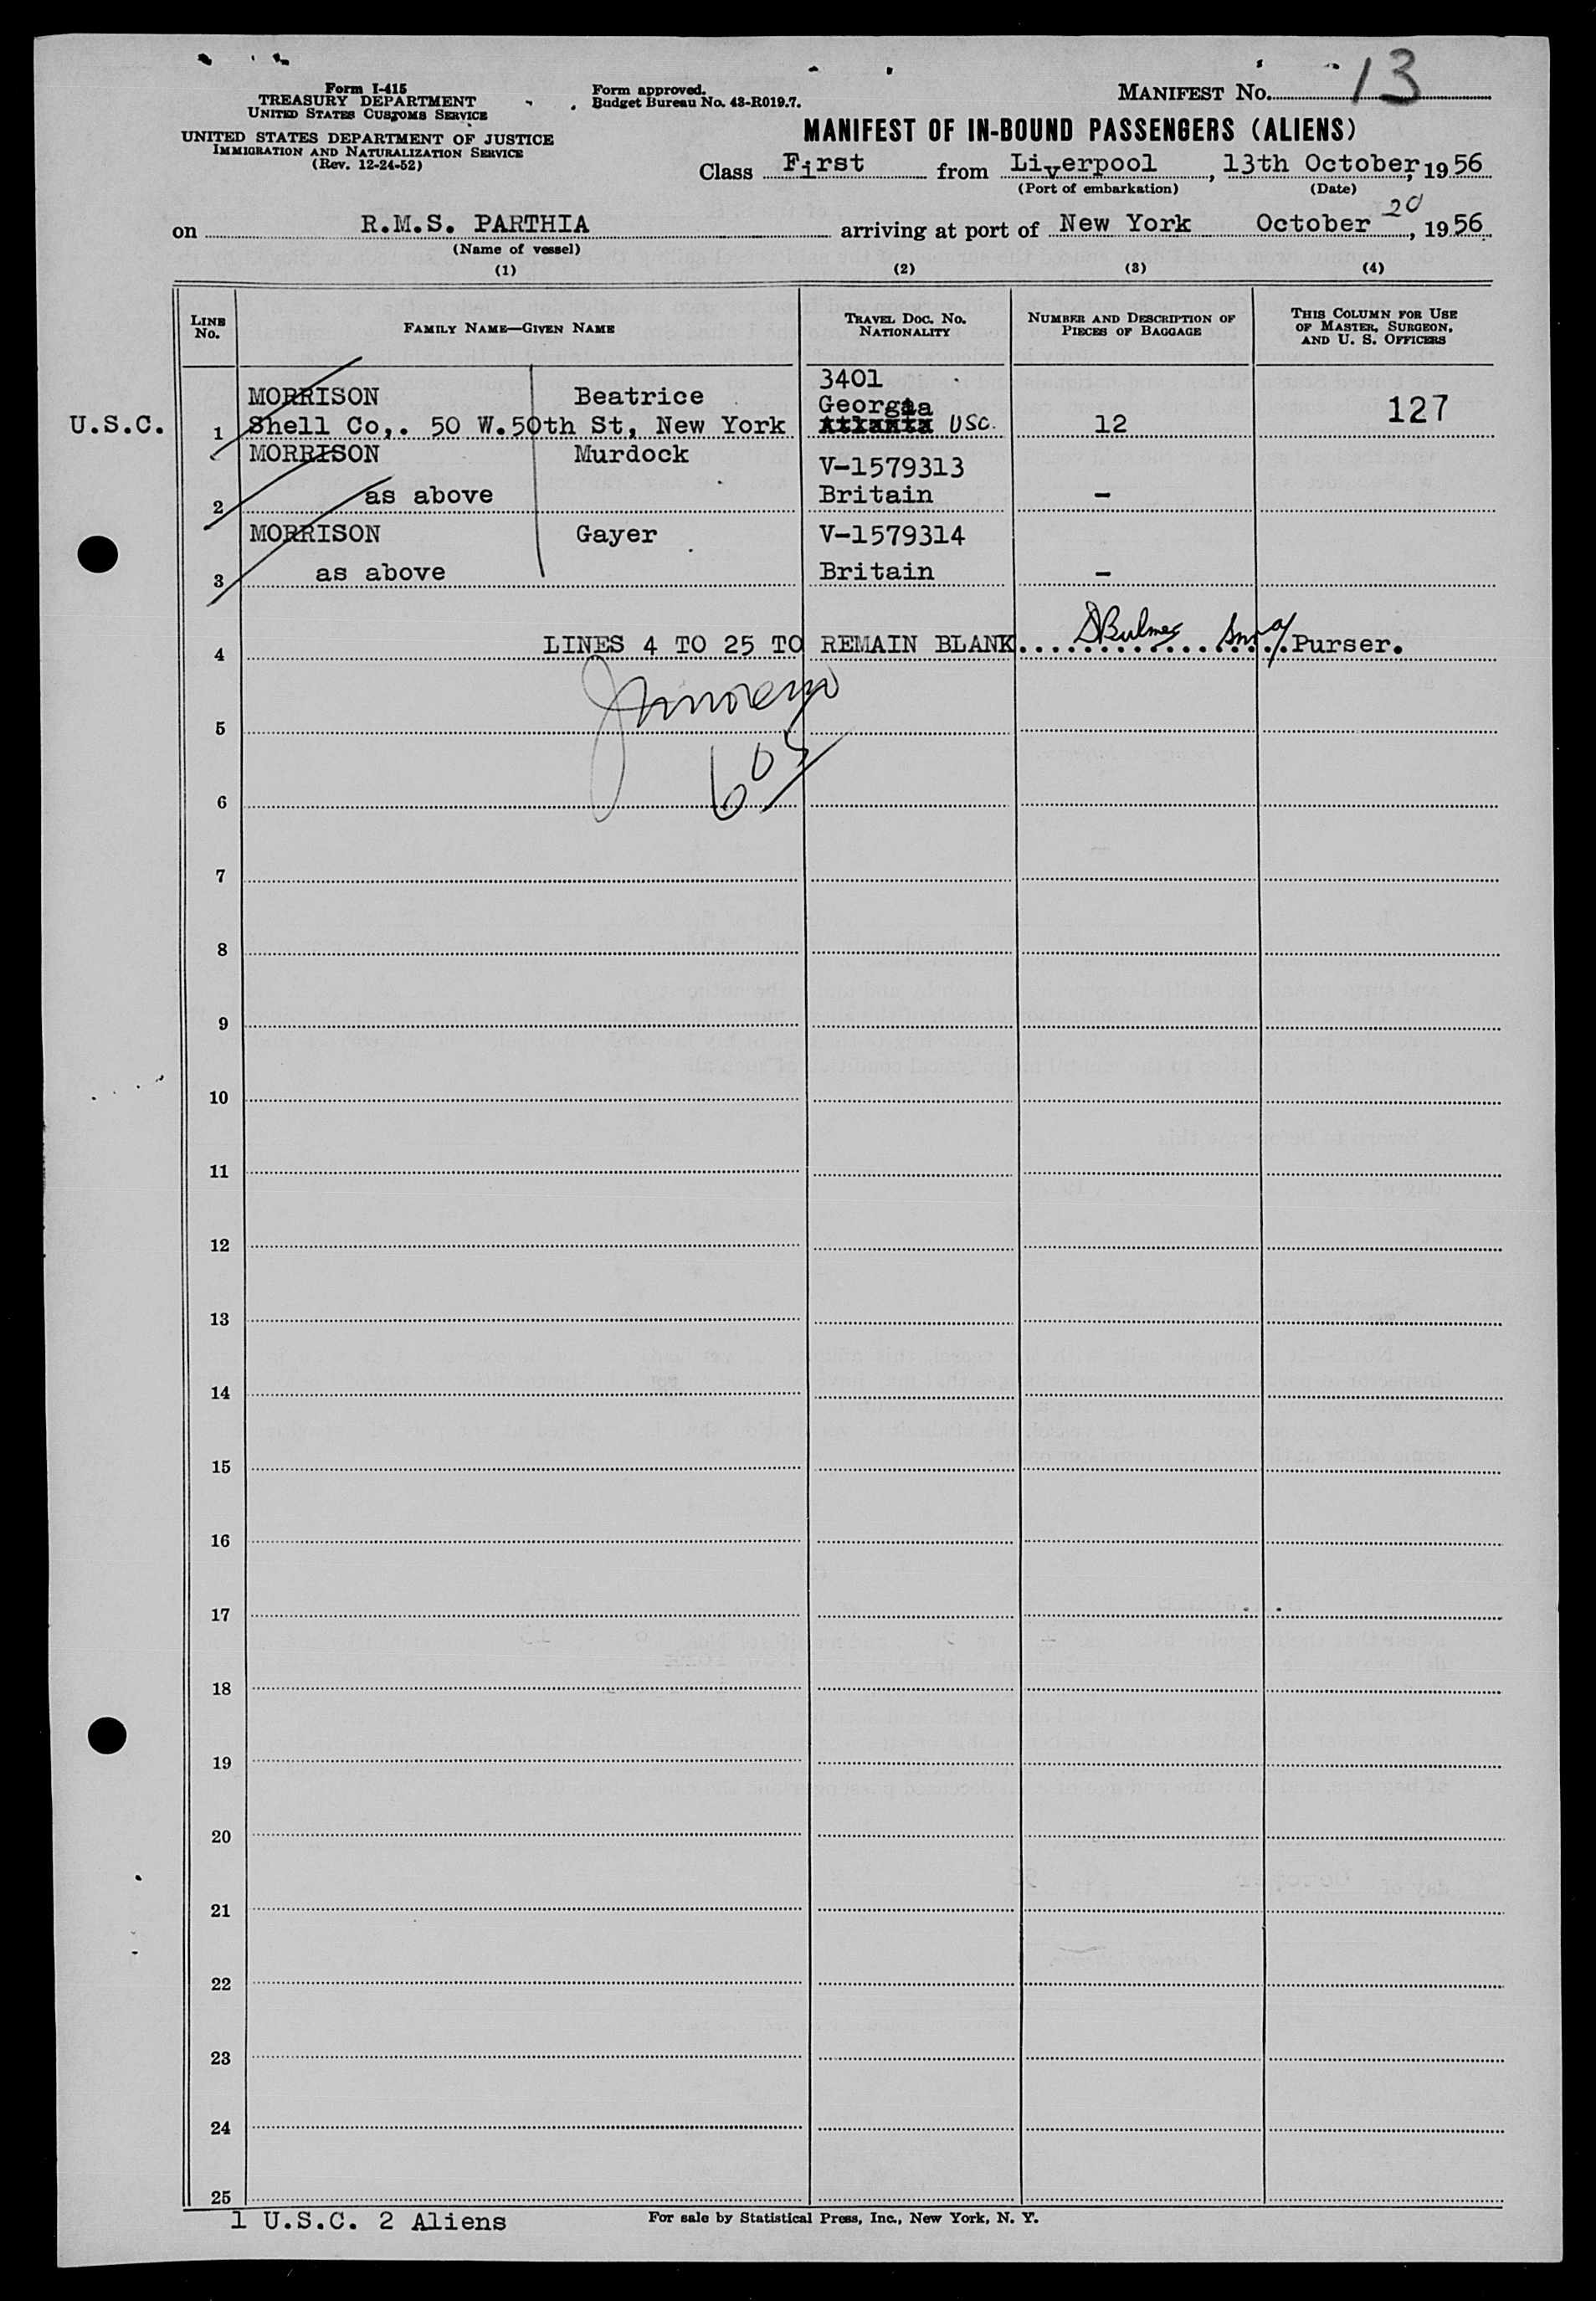 13
Form I-415
TREASURY DEPARTMENT
UNITED STATES CUSTOMS SERVICE
UNITED STATES DEPARTMENT OF JUSTICE
IMMIGRATION AND NATURALIZATION SERVICE
(Rev. 12-24-52)
Form approved.
Budget Bureau No. 43-R019.7.
MANIFEST No.
MANIFEST OF IN-BOUND PASSENGERS (ALIENS)
Class First from Liverpool, 13th October, 1956
(Port of embarkation) (Date)
on R.M.S. PARTHIA arriving at port of New York October 20, 1956
(Name of vessel)
(1) (2) (3) (4)
LINE No. FAMILY NAME—GIVEN NAME TRAVEL DOC. No. NATIONALITY NUMBER AND DESCRIPTION OF PIECES OF BAGGAGE THIS COLUMN FOR USE OF MASTER, SURGEON, AND U. S. OFFICERS
3401
MORRISON Beatrice Georgia 127
U.S.C. 1 Shell Co,. 50 W.50th St, New York Atlanta USC. 12
MORRISON Murdock V-1579313
2 as above Britain -
MORRISON Gayer V-1579314
3 as above Britain -
4 LINES 4 TO 25 TO REMAIN BLANK.................Purser.
5
6
7
8
9
10
11
12
13
14
15
16
17
18
19
20
21
22
23
24
25
1 U.S.C. 2 Aliens For sale by Statistical Press, Inc., New York, N. Y.